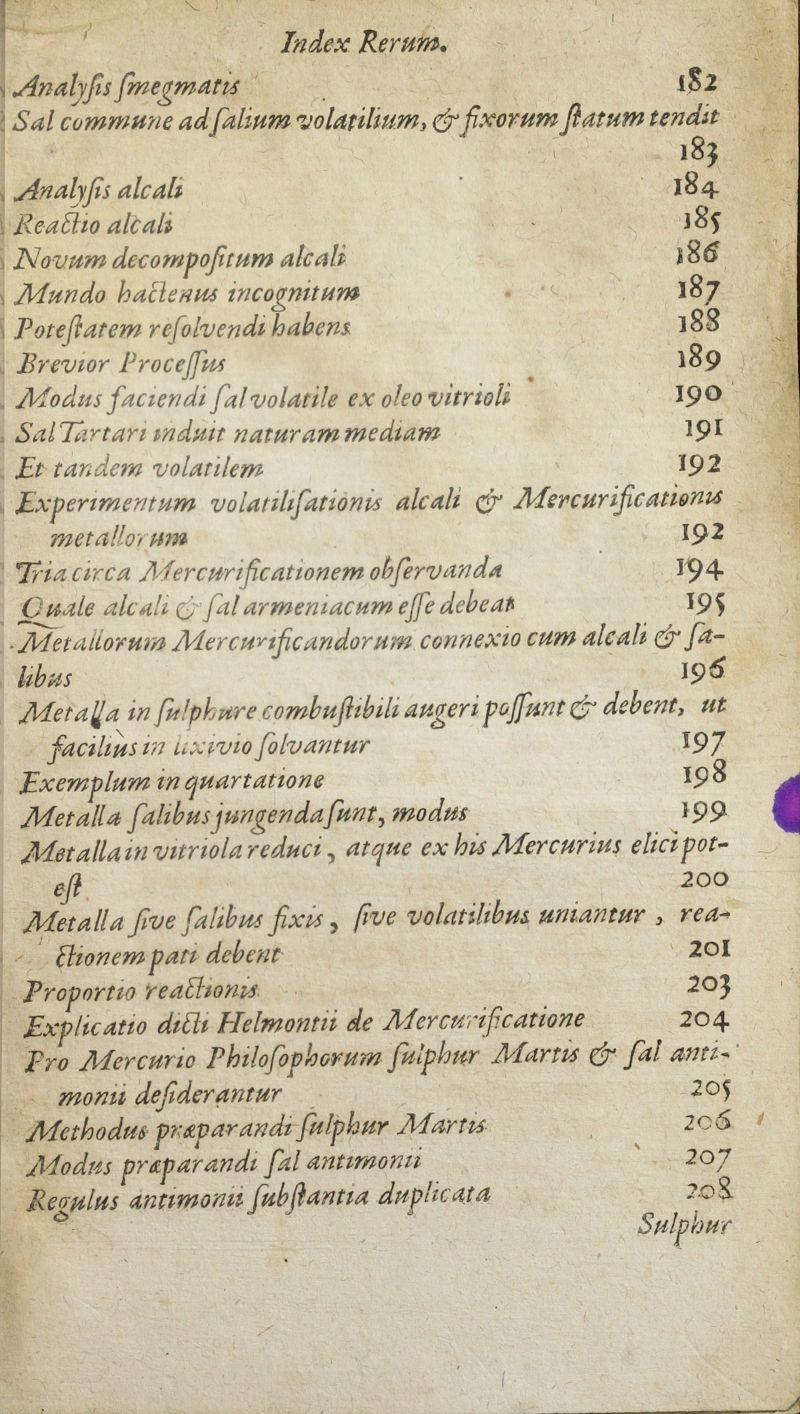 Index Rerum.
Analyſis ſmegmatis 182
Sal commune ad ſalium volatilium, & fixorum ſtatum tendit
183
Analyſis alcali 184
Reactio alcali 185
Novum decompoſitum alcali 186
Mundo hactenus incognitum 187
Poteſtatem reſolvendi habens 188
Brevior Proceſſus 189
Modus faciendi ſal volatile ex oleo vitrioli 190
Sal Tartari induit naturam mediam 191
Et tandem volatilem 192
Experimentum volatiliſationis alcali & Mercurificationis
metallorum 192
Tria circa Mercurificationem obſervanda 194
Quale alcali & ſal armeniacum eſſe debeat 195
Metallorum Mercurificandorum connexio cum alcali & ſa-
libus 196
Metalla in ſulphure combuſtibili augeri poſſunt & debent, ut
facilius in lixivio ſolvantur 197
Exemplum in quartatione 198
Metalla ſalibus jungenda ſunt, modus 199
Metalla in vitriola reduci, atque ex his Mercurius elici pot-
eſt 200
Metalla ſive ſalibus fixis, ſive volatilibus uniantur, rea-
ctionem pati debent 201
Proportio reactionis 203
Explicatio dicti Helmontii de Mercurificatione 204
Pro Mercurio Philoſophorum ſulphur Martis & ſal anti-
monii deſiderantur 205
Methodus præparandi ſulphur Martis 206
Modus præparandi ſal antimonii 207
Regulus antimonii ſubſtantia duplicata 208
Sulphur